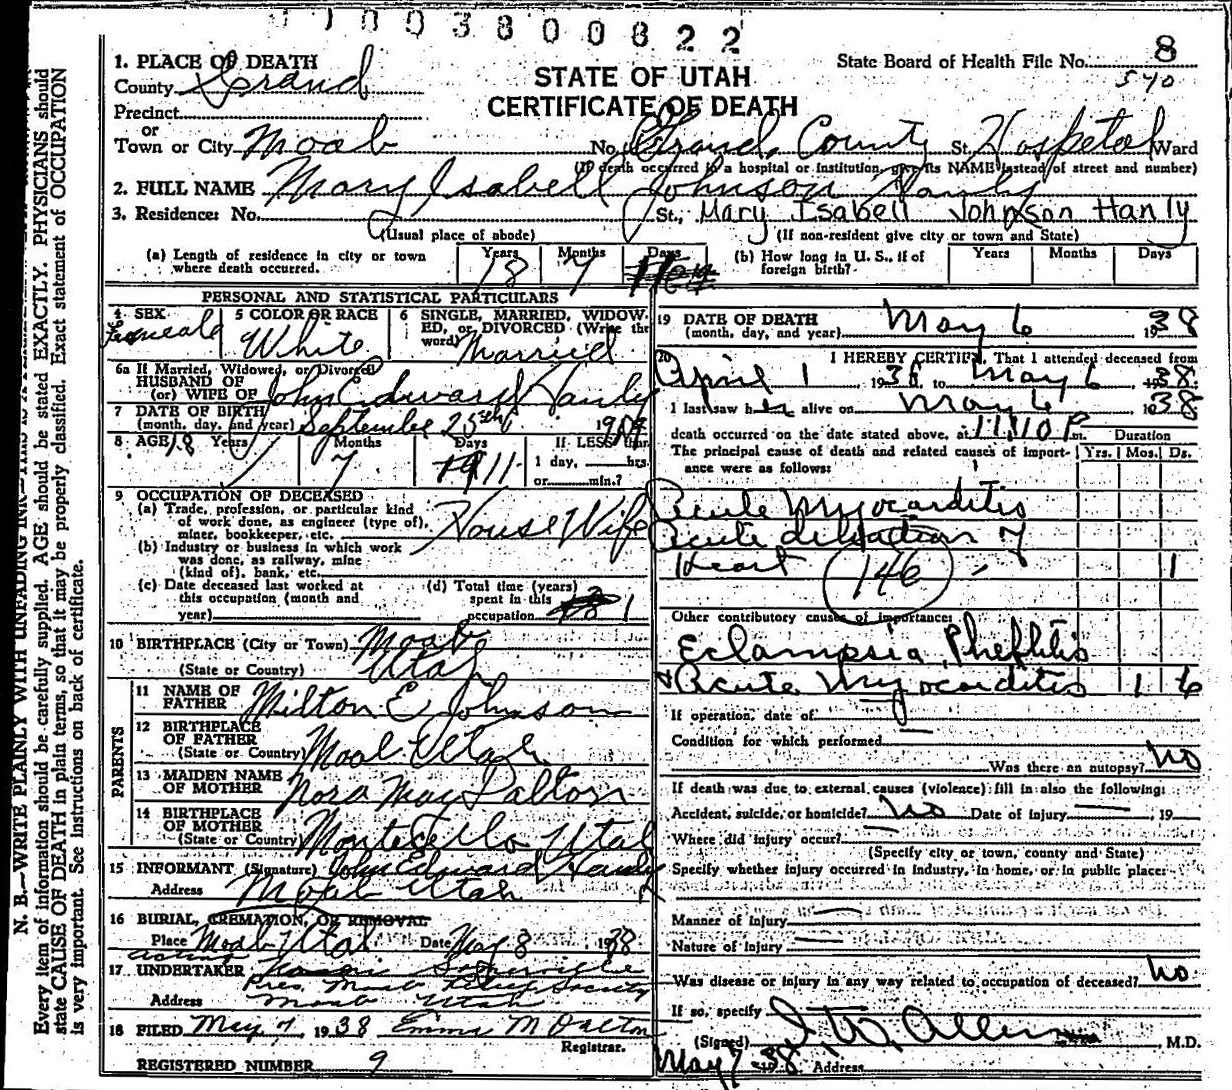 1003800822
1. PLACE OF DEATH
County Grand
Precinct
or
Town or City Moab
STATE OF UTAH
CERTIFICATE OF DEATH
State Board of Health File No. 8
540
No. Grand County St. Hospetal Ward
(If death occurred in a hospital or institution, give its NAME instead of street and number)
2. FULL NAME Mary Isabell Johnson Hanly
3. Residence: No. St., Mary Isabell Johnson Hanly
(Usual place of abode) (If non-resident give city or town and State)
(a) Length of residence in city or town where death occurred. Years 18 Months 7 Days
(b) How long in U. S., if of foreign birth? Years Months Days
PERSONAL AND STATISTICAL PARTICULARS
4 SEX Female
5 COLOR OR RACE White
6 SINGLE, MARRIED, WIDOWED, or DIVORCED (Write the word) Married
6a If Married, Widowed, or Divorced
HUSBAND OF
(or) WIFE OF John Edward Hanly
7 DATE OF BIRTH
(month, day, and year) September 25th 19
8 AGE 18 Years 7 Months 11 Days If LESS than
1 day, hrs.
or min.?
9 OCCUPATION OF DECEASED
(a) Trade, profession, or particular kind of work done, as engineer (type of), miner, bookkeeper, etc. House Wife
(b) Industry or business in which work was done, as railway, mine (kind of), bank, etc.
(c) Date deceased last worked at this occupation (month and year)
(d) Total time (years) spent in this occupation 1
10 BIRTHPLACE (City or Town) Moab
(State or Country) Utah
PARENTS
11 NAME OF FATHER Milton E Johnson
12 BIRTHPLACE OF FATHER
(State or Country) Moab Utah
13 MAIDEN NAME OF MOTHER Nora May Dalton
14 BIRTHPLACE OF MOTHER
(State or Country) Montecello Utah
15 INFORMANT (Signature) John Edward Hanly
Address Moab Utah
16 BURIAL, CREMATION, OR REMOVAL
Place Moab Utah Date May 8 1938
acting
17 UNDERTAKER Somerville
Pres. Moab Relief Society
Address Moab Utah
18 FILED May 7 1938 Emma M Dalton
Registrar.
REGISTERED NUMBER 9
19 DATE OF DEATH
(month, day, and year) May 6 1938
20 I HEREBY CERTIFY, That I attended deceased from
April 1 1938 to May 6 1938
I last saw her alive on May 6 1938
death occurred on the date stated above, at 11:10 P m. Duration
The principal cause of death and related causes of importance were as follows: Yrs. Mos. Ds.
Acute Myocarditis
Acute dilatation of
Heart 146 1
Other contributory causes of importance:
Eclampsia, Pheflitis
& Acute Myocarditis 1 6
If operation, date of
Condition for which performed
Was there an autopsy? No
If death was due to external causes (violence) fill in also the following:
Accident, suicide, or homicide? No Date of injury , 19
Where did injury occur?
(Specify city or town, county and State)
Specify whether injury occurred in industry, in home, or in public place:
Manner of injury
Nature of injury
Was disease or injury in any way related to occupation of deceased? No
If so, specify
(Signed) I. W. Allen , M.D.
May 7 - 38 Address
N. B.—WRITE PLAINLY WITH UNFADING INK—THIS IS A PERMANENT
Every item of information should be carefully supplied. AGE should be stated EXACTLY. PHYSICIANS should
state CAUSE OF DEATH in plain terms, so that it may be properly classified. Exact statement of OCCUPATION
is very important. See instructions on back of certificate.